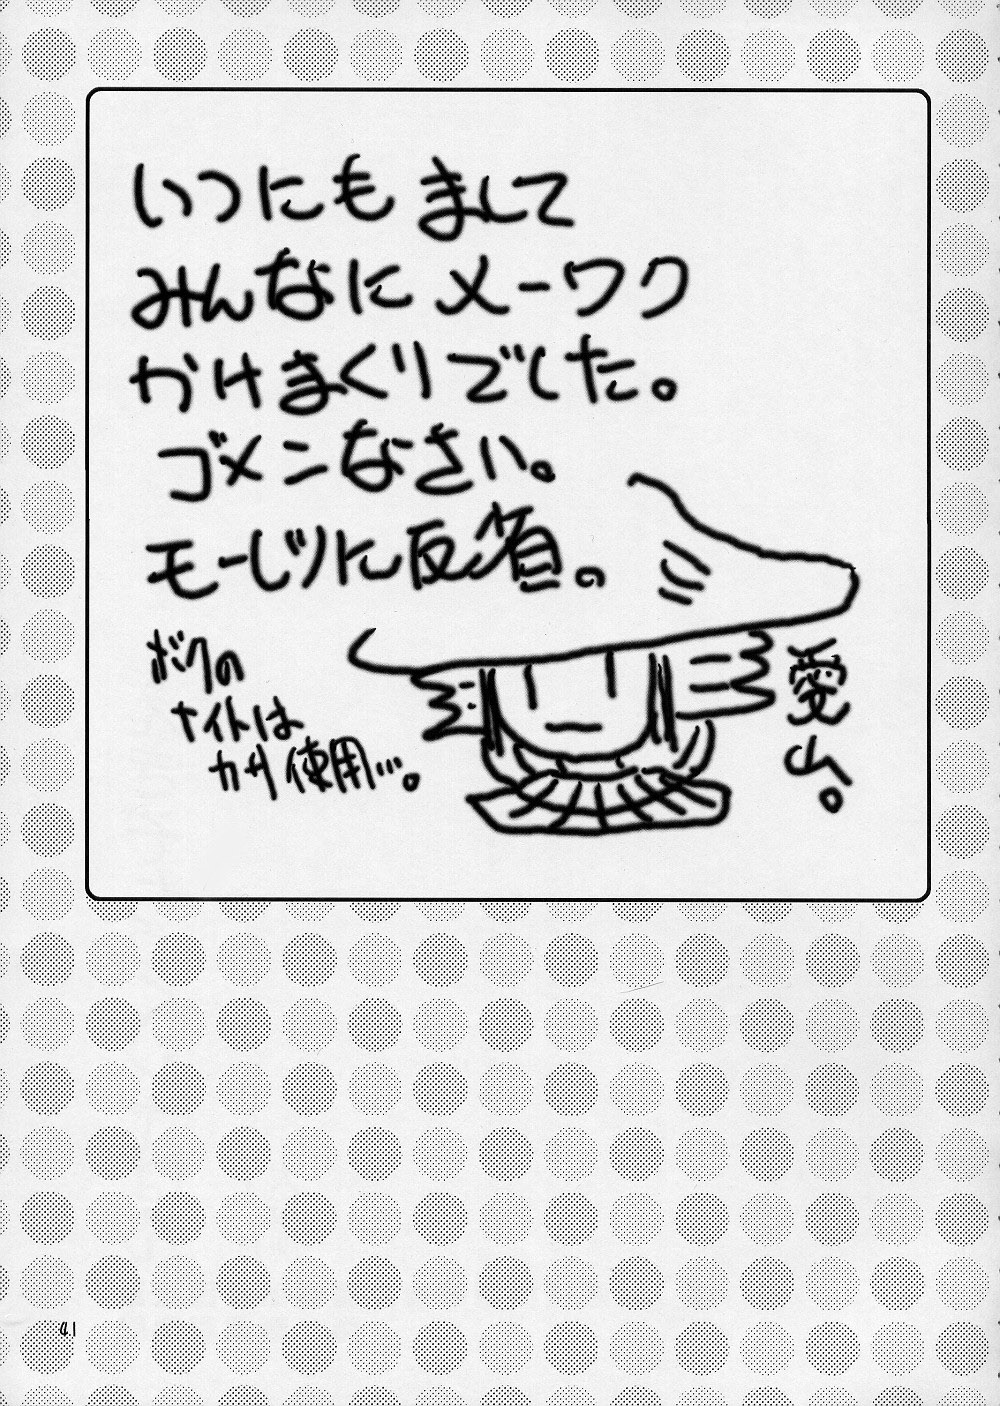 いつにもまして
みんなにメーワク
かけまくりでした。
ゴメンなさい。
モーレツに反省。
ボクの
ナイトは
カサ使用…。
愛
41